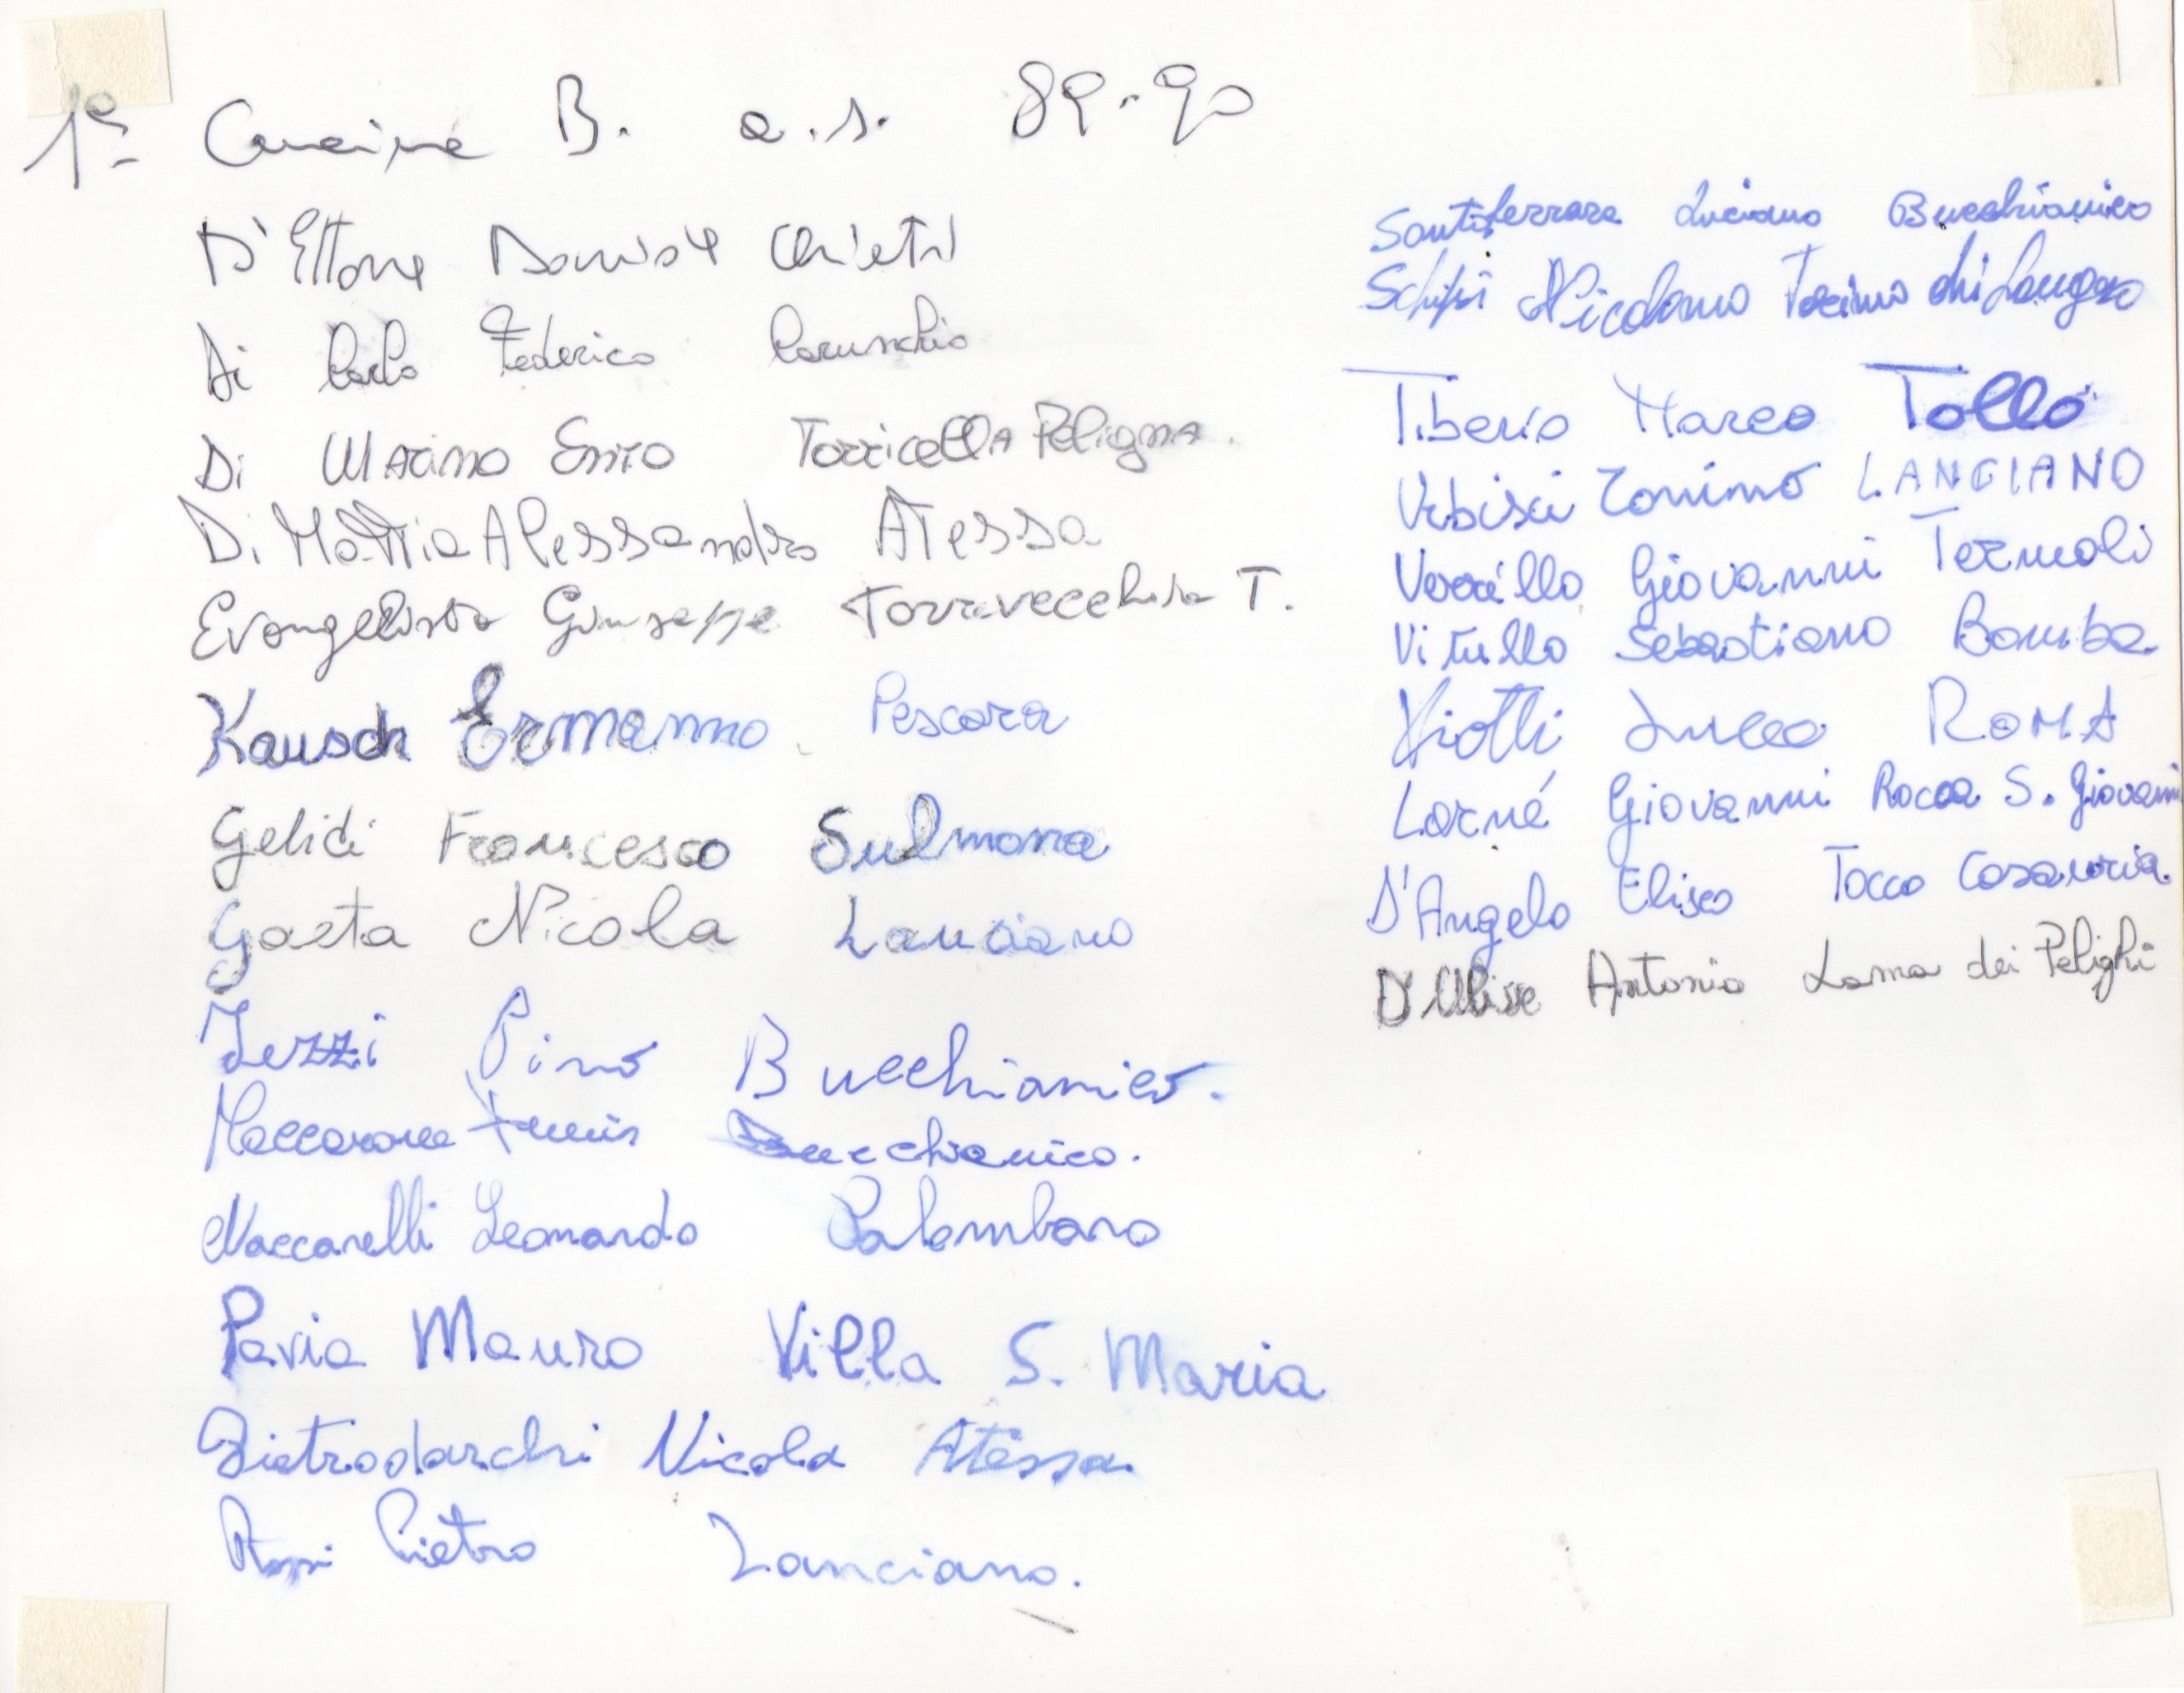 1ª Cucina B. a.s. 89-90
D'Ettorre Daniele Chieti
Di Carlo Federico Carunchio
Di Marino Enio Torricella Peligna.
Di Mattia Alessandro Atessa
Evangelista Giuseppe Torrevecchia T.
Kausch Ermanno Pescara
Gelidi Francesco Sulmona
Gaeta Nicola Lanciano
Iezzi Pino Bucchianico.
Maccarone Bucchianico.
Naccarelli Leonardo Palombaro
Pavia Mauro Villa S. Maria
Pietrodarchi Nicola Atessa
Rossi Pietro Lanciano.
Santiferrara Luciano Bucchianico
Schips Nicola
Tiberio Marco Tollo
Urbisci Tonino LANCIANO
Verrillo Giovanni Termoli
Vitullo Sebastiano Bomba
Viotti Luca ROMA
Larné Giovanni Rocca S. Giovanni
D'Angelo Eliseo Tocco Casauria.
D'Ulisse Antonio Lama dei Peligni